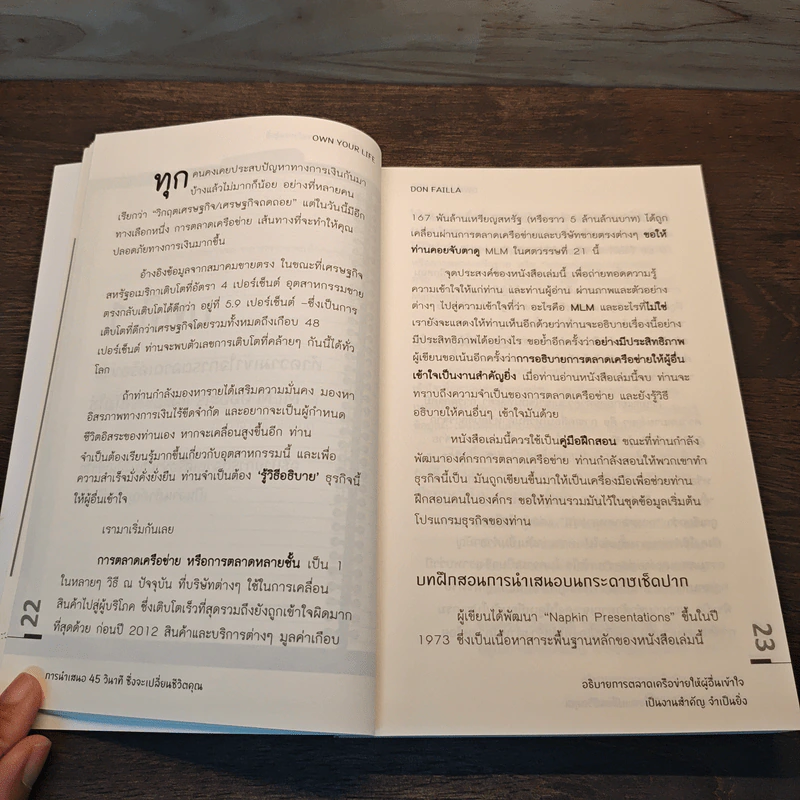 OWN YOUR LIFE
ทุก คนคงเคยประสบปัญหาทางการเงินกันมา
บ้างแล้วไม่มากก็น้อย อย่างที่หลายคน
เรียกว่า “วิกฤตเศรษฐกิจ/เศรษฐกิจถดถอย” แต่ในวันนี้มีอีก
ทางเลือกหนึ่ง การตลาดเครือข่าย เส้นทางที่จะทำให้คุณ
ปลอดภัยทางการเงินมากขึ้น
อ้างอิงข้อมูลจากสมาคมขายตรง ในขณะที่เศรษฐกิจ
สหรัฐอเมริกาเติบโตที่อัตรา 4 เปอร์เซ็นต์ อุตสาหกรรมขาย
ตรงกลับเติบโตได้ดีกว่า อยู่ที่ 5.9 เปอร์เซ็นต์ –ซึ่งเป็นการ
เติบโตที่ดีกว่าเศรษฐกิจโดยรวมทั้งหมดถึงเกือบ 48
เปอร์เซ็นต์ ท่านจะพบตัวเลขการเติบโตที่คล้ายๆ กันนี้ได้ทั่ว
โลก
ถ้าท่านกำลังมองหารายได้เสริมความมั่นคง มองหา
อิสรภาพทางการเงินไร้ขีดจำกัด และอยากจะเป็นผู้กำหนด
ชีวิตอิสระของท่านเอง หากจะเคลื่อนสูงขึ้นอีก ท่าน
จำเป็นต้องเรียนรู้มากขึ้นเกี่ยวกับอุตสาหกรรมนี้ และเพื่อ
ความสำเร็จมั่งคั่งยั่งยืน ท่านจำเป็นต้อง ‘รู้วิธีอธิบาย’ ธุรกิจนี้
ให้ผู้อื่นเข้าใจ
เรามาเริ่มกันเลย
การตลาดเครือข่าย หรือการตลาดหลายชั้น เป็น 1
ในหลายๆ วิธี ณ ปัจจุบัน ที่บริษัทต่างๆ ใช้ในการเคลื่อน
สินค้าไปสู่ผู้บริโภค ซึ่งเติบโตเร็วที่สุดรวมถึงยังถูกเข้าใจผิดมาก
ที่สุดด้วย ก่อนปี 2012 สินค้าและบริการต่างๆ มูลค่าเกือบ
22
การนำเสนอ 45 วินาที ซึ่งจะเปลี่ยนชีวิตคุณ
DON FAILLA
167 พันล้านเหรียญสหรัฐ (หรือราว 5 ล้านล้านบาท) ได้ถูก
เคลื่อนผ่านการตลาดเครือข่ายและบริษัทขายตรงต่างๆ ขอให้
ท่านคอยจับตาดู MLM ในศตวรรษที่ 21 นี้
จุดประสงค์ของหนังสือเล่มนี้ เพื่อถ่ายทอดความรู้
ความเข้าใจให้แก่ท่าน และท่านผู้อ่าน ผ่านภาพและตัวอย่าง
ต่างๆ ไปสู่ความเข้าใจที่ว่า อะไรคือ MLM และอะไรที่ไม่ใช่
เรายังจะแสดงให้ท่านเห็นอีกด้วยว่าท่านจะอธิบายเรื่องนี้อย่าง
มีประสิทธิภาพได้อย่างไร ขอย้ำอีกครั้งว่าอย่างมีประสิทธิภาพ
ผู้เขียนขอเน้นอีกครั้งว่าการอธิบายการตลาดเครือข่ายให้ผู้อื่น
เข้าใจเป็นงานสำคัญยิ่ง เมื่อท่านอ่านหนังสือเล่มนี้จบ ท่านจะ
ทราบถึงความจำเป็นของการตลาดเครือข่าย และยังรู้วิธี
อธิบายให้คนอื่นๆ เข้าใจมันด้วย
หนังสือเล่มนี้ควรใช้เป็นคู่มือฝึกสอน ขณะที่ท่านกำลัง
พัฒนาองค์กรการตลาดเครือข่าย ท่านกำลังสอนให้พวกเขาทำ
ธุรกิจนี้เป็น มันถูกเขียนขึ้นมาให้เป็นเครื่องมือเพื่อช่วยท่าน
ฝึกสอนคนในองค์กร ขอให้ท่านรวมมันไว้ในชุดข้อมูลเริ่มต้น
โปรแกรมธุรกิจของท่าน
บทฝึกสอนการนำเสนอบนกระดาษเช็ดปาก
ผู้เขียนได้พัฒนา “Napkin Presentations” ขึ้นในปี
1973 ซึ่งเป็นเนื้อหาสาระพื้นฐานหลักของหนังสือเล่มนี้
23
อธิบายการตลาดเครือข่ายให้ผู้อื่นเข้าใจ
เป็นงานสำคัญ จำเป็นยิ่ง